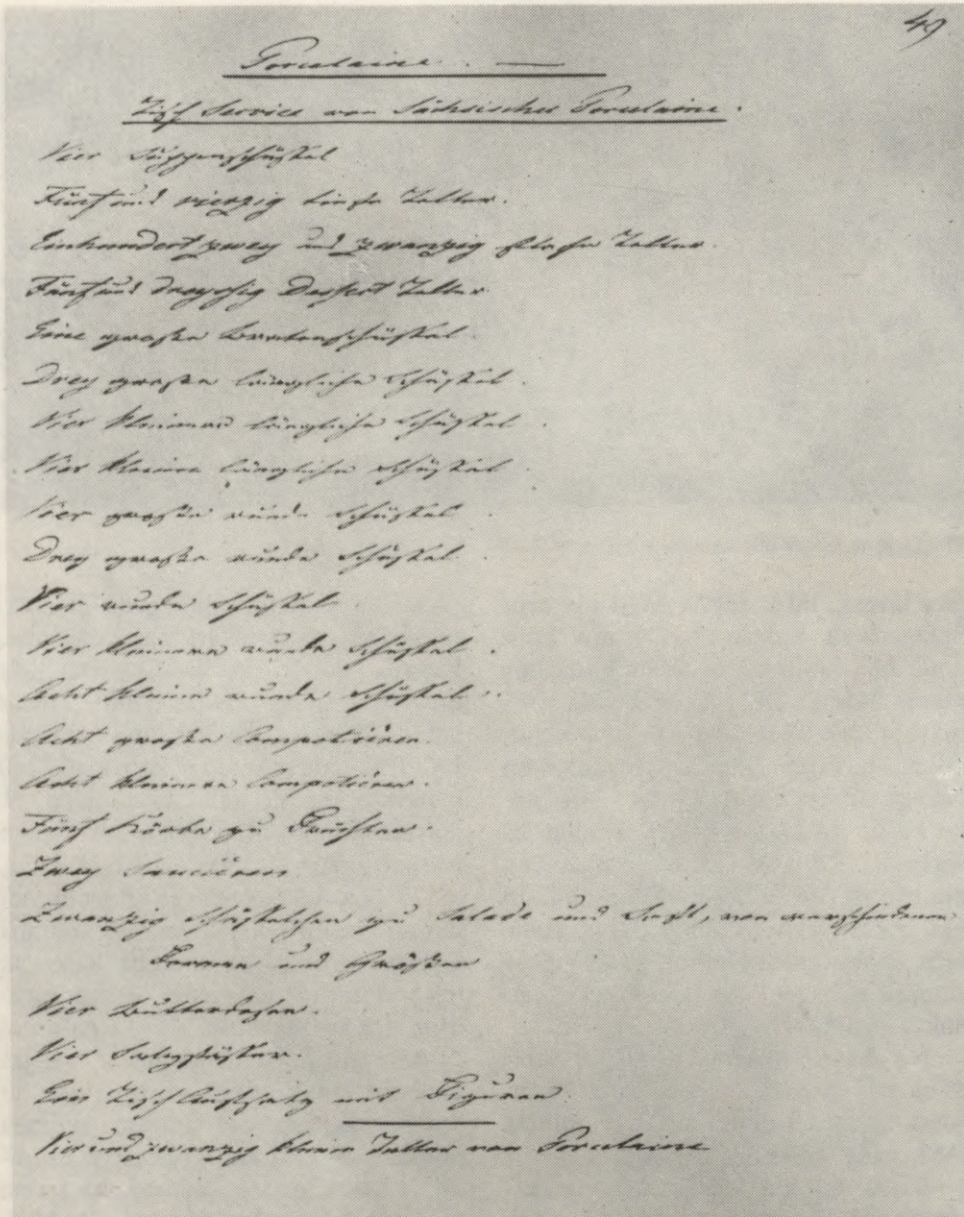 49
Porcelaine. —
Tisch Service von Sächsischer Porcelaine.
Vier Suppenschüßel
Fünf und vierzig tiefe Teller.
Einhundert zwey und zwanzig flache Teller.
Fünf und dreyßig Dessert Teller.
Eine große Bratenschüßel.
Drey große längliche Schüßel.
Vier kleinere längliche Schüßel.
Vier kleine längliche Schüßel.
Vier große runde Schüßel.
Drey große runde Schüßel.
Vier runde Schüßel.
Vier kleinere runde Schüßel.
Acht kleine runde Schüßel.
Acht große Compotièren.
Acht kleinere Compotièren.
Fünf Körbe zu Früchten.
Zwey Saucièren
Zwanzig Schüßelchen zu Salade und Senft, von verschiedenen
Formen und Größen
Vier Butterdosen.
Vier Salzfäßer.
Ein Tisch Aufsatz mit Figuren.
Vier und zwanzig kleine Teller von Porcelaine